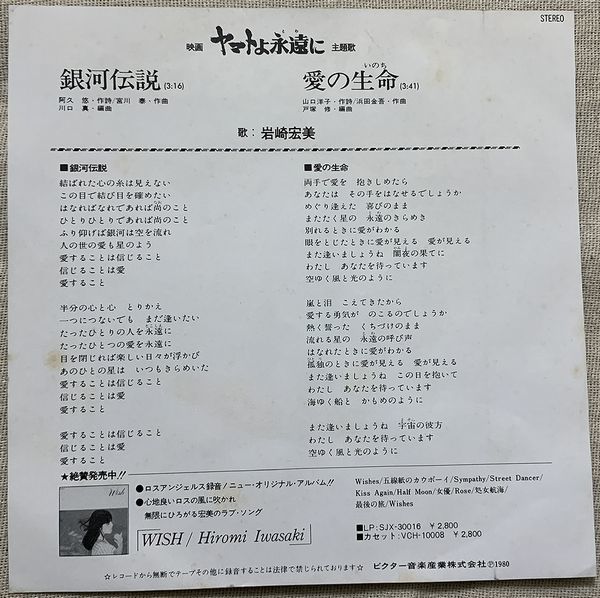 STEREO
映画 ヤマトよ永遠に 主題歌
銀河伝説(3:16)
阿久 悠・作詩/宮川 泰・作曲
川口 真・編曲
愛の生命(3:41)
山口洋子・作詩/浜田金吾・作曲
戸塚 修・編曲
歌:岩崎宏美
■銀河伝説
結ばれた心の糸は見えない
この目で結び目を確めたい
はなればなれであれば尚のこと
ひとりひとりであれば尚のこと
ふり仰げば銀河は空を流れ
人の世の愛も星のよう
愛することは信じること
信じることは愛
愛すること
半分の心と心 とりかえ
一つにつないでも まだ逢いたい
たったひとりの人を永遠に
たったひとつの愛を永遠に
目を閉じれば楽しい日々が浮かび
あのひとの星は いつもきらめいた
愛することは信じること
信じることは愛
愛すること
愛することは信じること
信じることは愛
愛すること
■愛の生命
両手で愛を 抱きしめたら
あなたは その手をはなせるでしょうか
めぐり逢えた 喜びのまま
またたく星の 永遠のきらめき
別れるときに愛がわかる
眼をとじたときに愛が見える 愛が見える
また逢いましょうね 闇夜の果てに
わたし あなたを待っています
空ゆく風と光のように
嵐と泪 こえてきたから
愛する勇気が のこるのでしょうか
熱く誓った くちづけのまま
流れる星の 永遠の呼び声
はなれたときに愛がわかる
孤独のときに愛が見える 愛が見える
また逢いましょうね この日を抱いて
わたし あなたを待っています
海ゆく船と かもめのように
また逢いましょうね 宇宙の彼方
わたし あなたを待っています
空ゆく風と光のように
★絶賛発売中!!
Wish
●ロスアンジェルス録音!ニュー・オリジナル・アルバム!!
●心地良いロスの風に吹かれ
無限にひろがる宏美のラブ・ソング
WISH/Hiromi Iwasaki
Wishes/五線紙のカウボーイ/Sympathy/Street Dancer/
Kiss Again/Half Moon/女優/Rose/処女航海/
最後の旅/Wishes
■LP:SJX-30016 ￥2,800
■カセット:VCH-10008 ￥2,800
☆レコードから無断でテープその他に録音することは法律で禁じられております☆
ビクター音楽産業株式会社Ⓟ1980